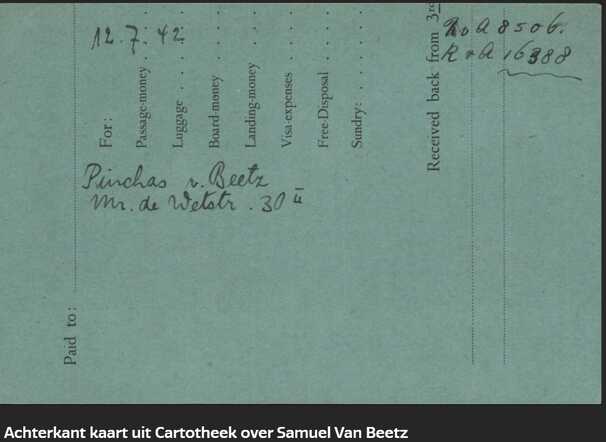 12.7.42
R v A 8506.
R v A 16388
For:
Passage-money
Luggage
Board-money
Landing-money
Visa-expenses
Free-Disposal
Sundry:
Received back from 3rd
Pinchas v. Beetz
Mr. de Wetstr. 30 II
Paid to:
Achterkant kaart uit Cartotheek over Samuel Van Beetz